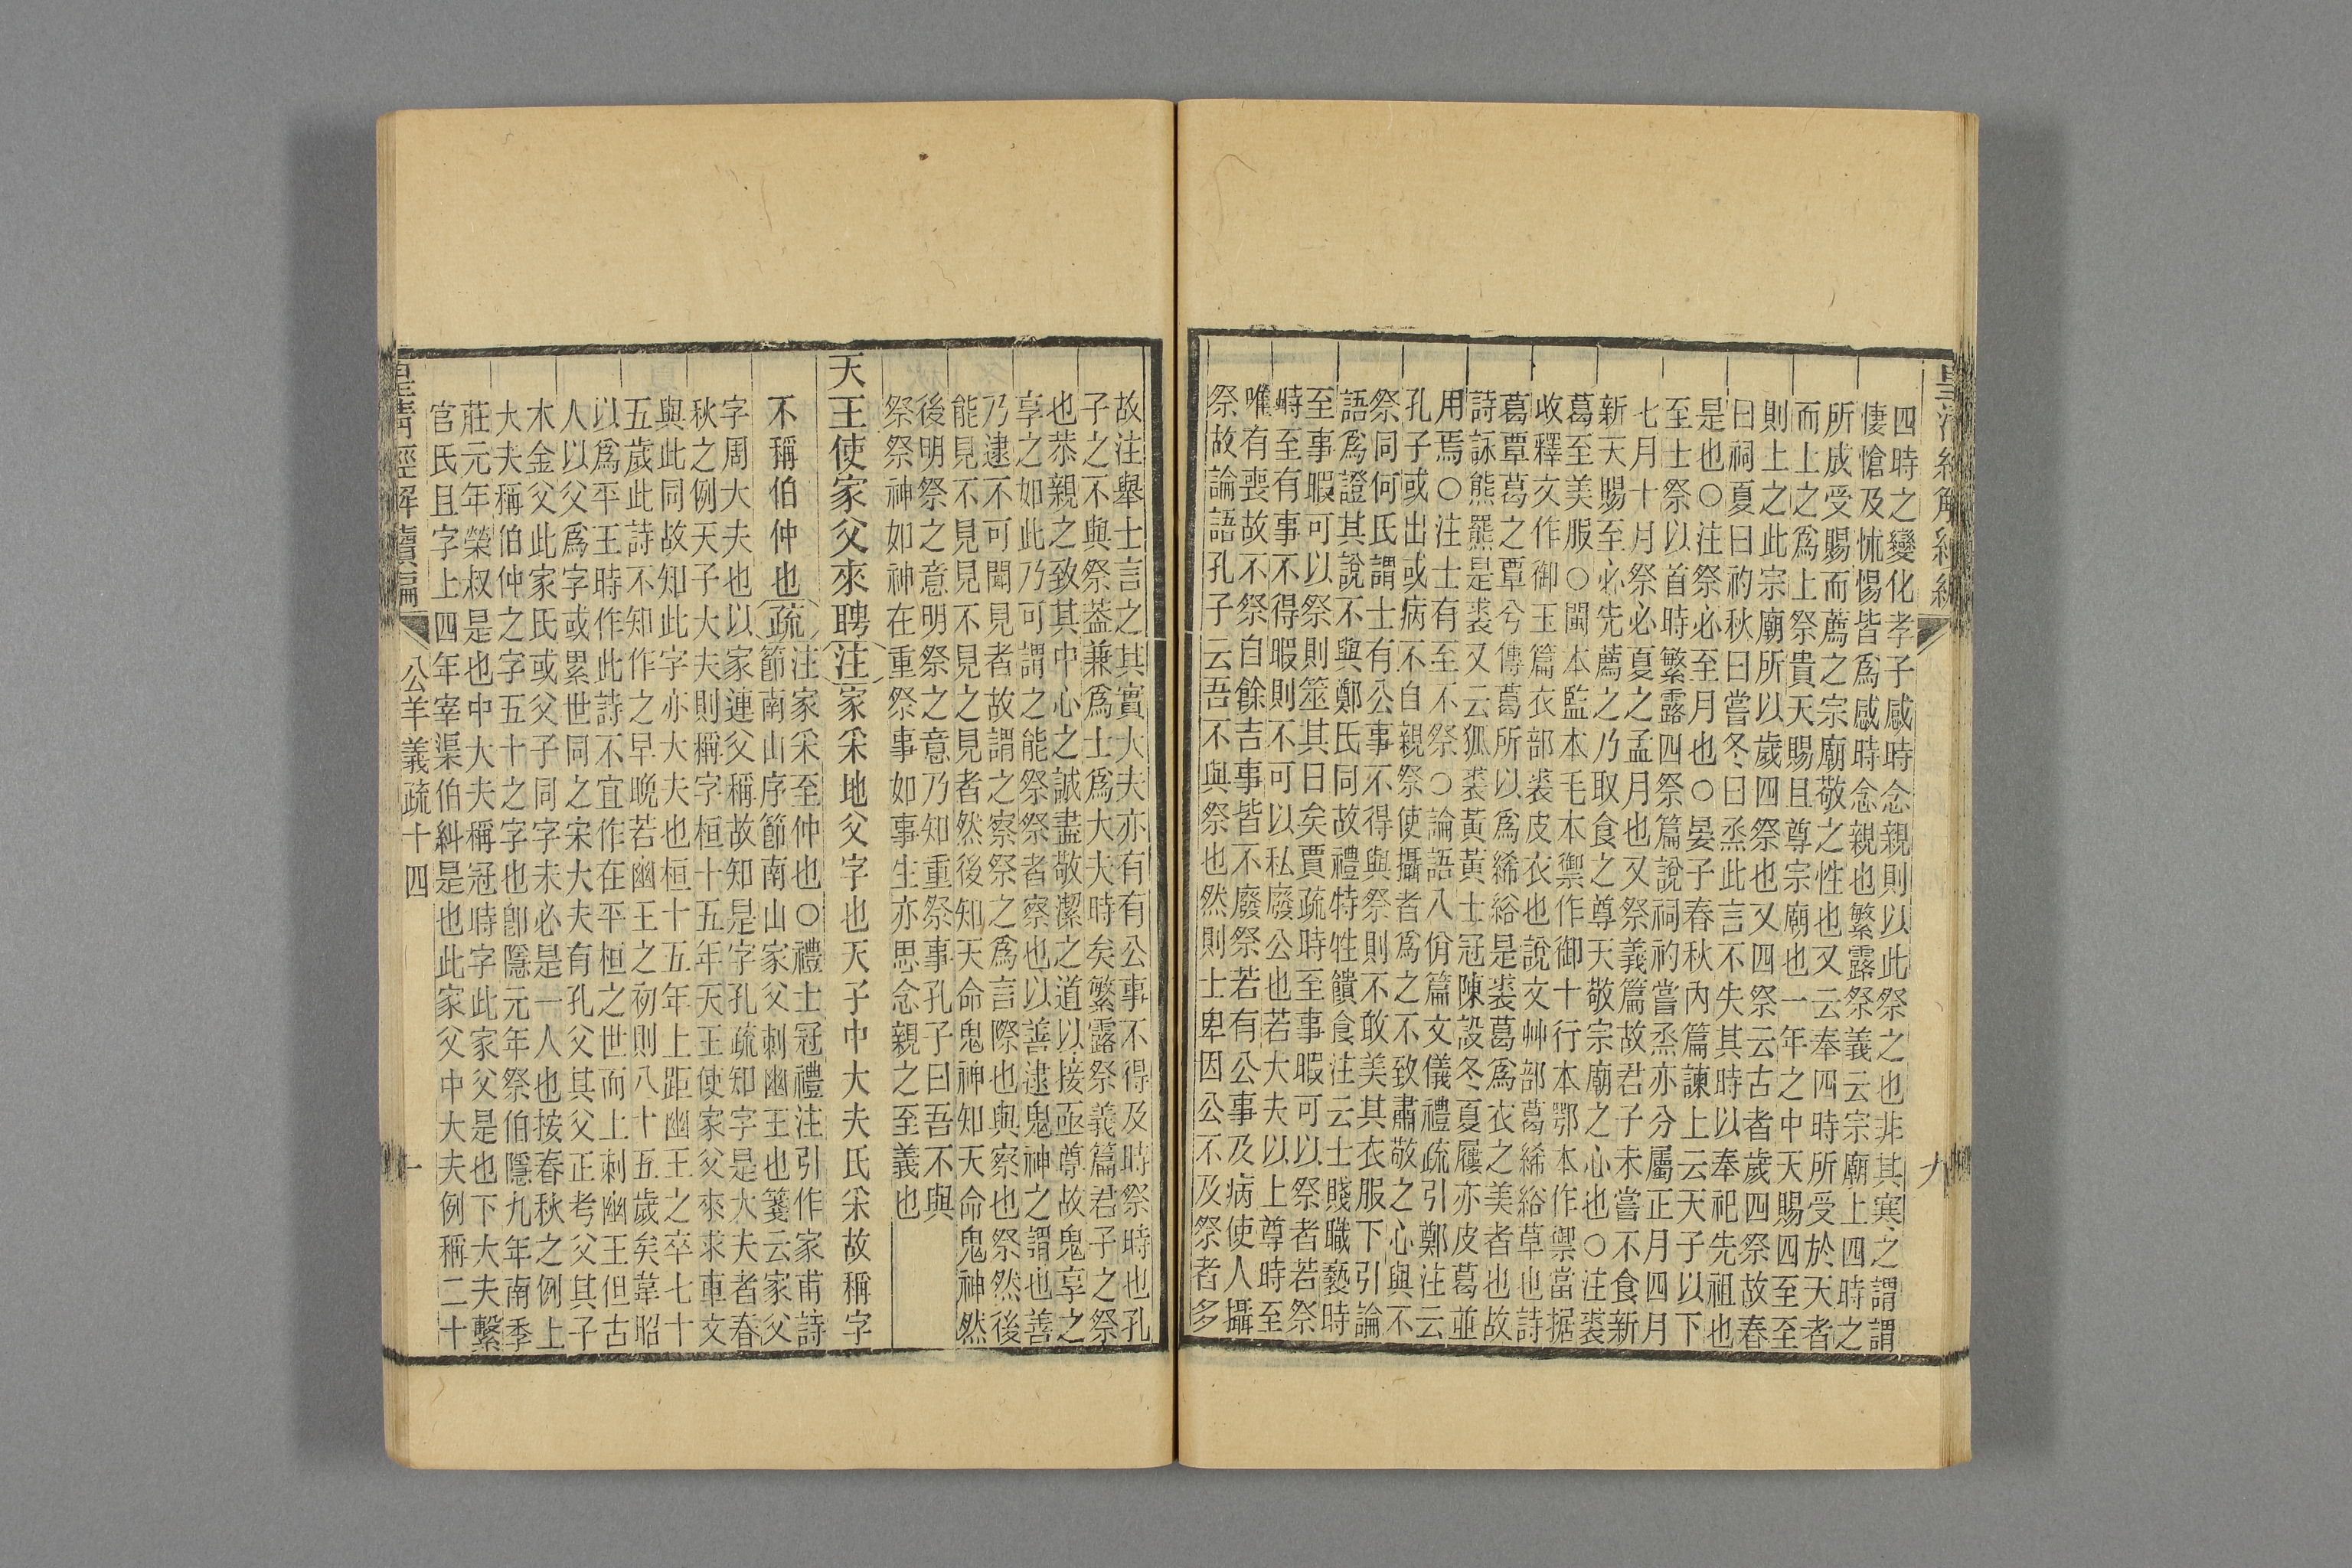 四時之變化孝子感時念親則以此祭之也非其寒之謂謂
悽愴及怵惕皆爲感時念親也繁露祭義云宗廟上四時之
所成受賜而薦之宗廟敬之性也又云奉四時所受於天者
而上之爲上祭貴天賜且尊宗廟也一年之中天賜四至至
則上之此宗廟所以歲四祭也又四祭云古者歲四祭故春
曰祠夏曰礿秋曰嘗冬曰烝此言不失其時以奉祀先祖也
是也○注祭必至月也○晏子春秋內篇諫上云天子以下
至士祭以首時繁露四祭篇說祠礿嘗烝亦分屬正月四月
七月十月祭必夏之孟月也又祭義篇故君子未嘗不食新
新天賜至必先薦之乃取食之尊天敬宗廟之心也○注裘
葛至美服○閩本監本毛本禦作御十行本鄂本作禦當据
改釋文作御玉篇衣部裘皮衣也說文艸部葛絺綌草也詩
葛覃葛之覃兮傳葛所以爲絺綌是裘葛爲衣之美者也故
詩詠熊羆是裘又云狐裘黃黃士冠陳設冬夏屨亦皮葛並
用焉○注士有至不祭○論語八佾篇文儀禮疏引鄭注云
孔子或出或病不自親祭使攝者爲之不致肅敬之心與不
祭同何氏謂士有公事不得與祭則不敢美其衣服下引論
語爲證其說不與鄭氏同故禮特牲饋食注云士賤職褻時
至事暇可以祭則筮其日矣賈疏時至事暇可以祭者若祭
時至有事不得暇則不可以私廢公也若大夫以上尊時至
唯有喪故不祭自餘吉事皆不廢祭若有公事及病使人攝
祭故論語孔子云吾不與祭也然則士卑因公不及祭者多
九
故注舉士言之其實大夫亦有有公事不得及時祭時也孔
子之不與祭葢兼爲士爲大夫時矣繁露祭義篇君子之祭
也恭親之致其中心之誠盡敬潔之道以接亟尊故鬼享之
享之如此乃可謂之能祭祭者察也以善逮鬼神之謂也善
乃逮不可聞見者故謂之察祭之爲言際也與察也祭然後
能見不見見不見之見者然後知天命鬼神知天命鬼神然
後明祭之意明祭之意乃知重祭事孔子曰吾不與
祭祭神如神在重祭事如事生亦思念親之至義也
天王使家父來聘注家采地父字也天子中大夫氏采故稱字
不稱伯仲也疏注家采至仲也○禮士冠禮注引作家甫詩
節南山序節南山家父刺幽王也箋云家父
字周大夫也以家連父稱故知是字孔疏知字是大夫者春
秋之例天子大夫則稱字桓十五年天王使家父來求車文
與此同故知此字亦大夫也桓十五年上距幽王之卒七十
五歲此詩不知作之早晚若幽王之初則八十五歲矣韋昭
以爲平王時作此詩不宜作在平桓之世而上刺幽王但古
人以父爲字或累世同之宋大夫有孔父其父正考父其子
木金父此家氏或父子同字未必是一人也按春秋之例上
大夫稱伯仲之字五十之字也卽隱元年祭伯隱九年南季
莊元年榮叔是也中大夫稱冠時字此家父是也下大夫繫
官氏且字上四年宰渠伯糾是也此家父中大夫例稱二十
皇淸經解續編
公羊義疏十四